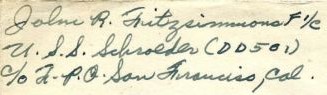 John R. Fitzsimmons F 1/c
U.S.S. Schroeder (DD501)
c/o F.P.O. San Francisco, Cal.